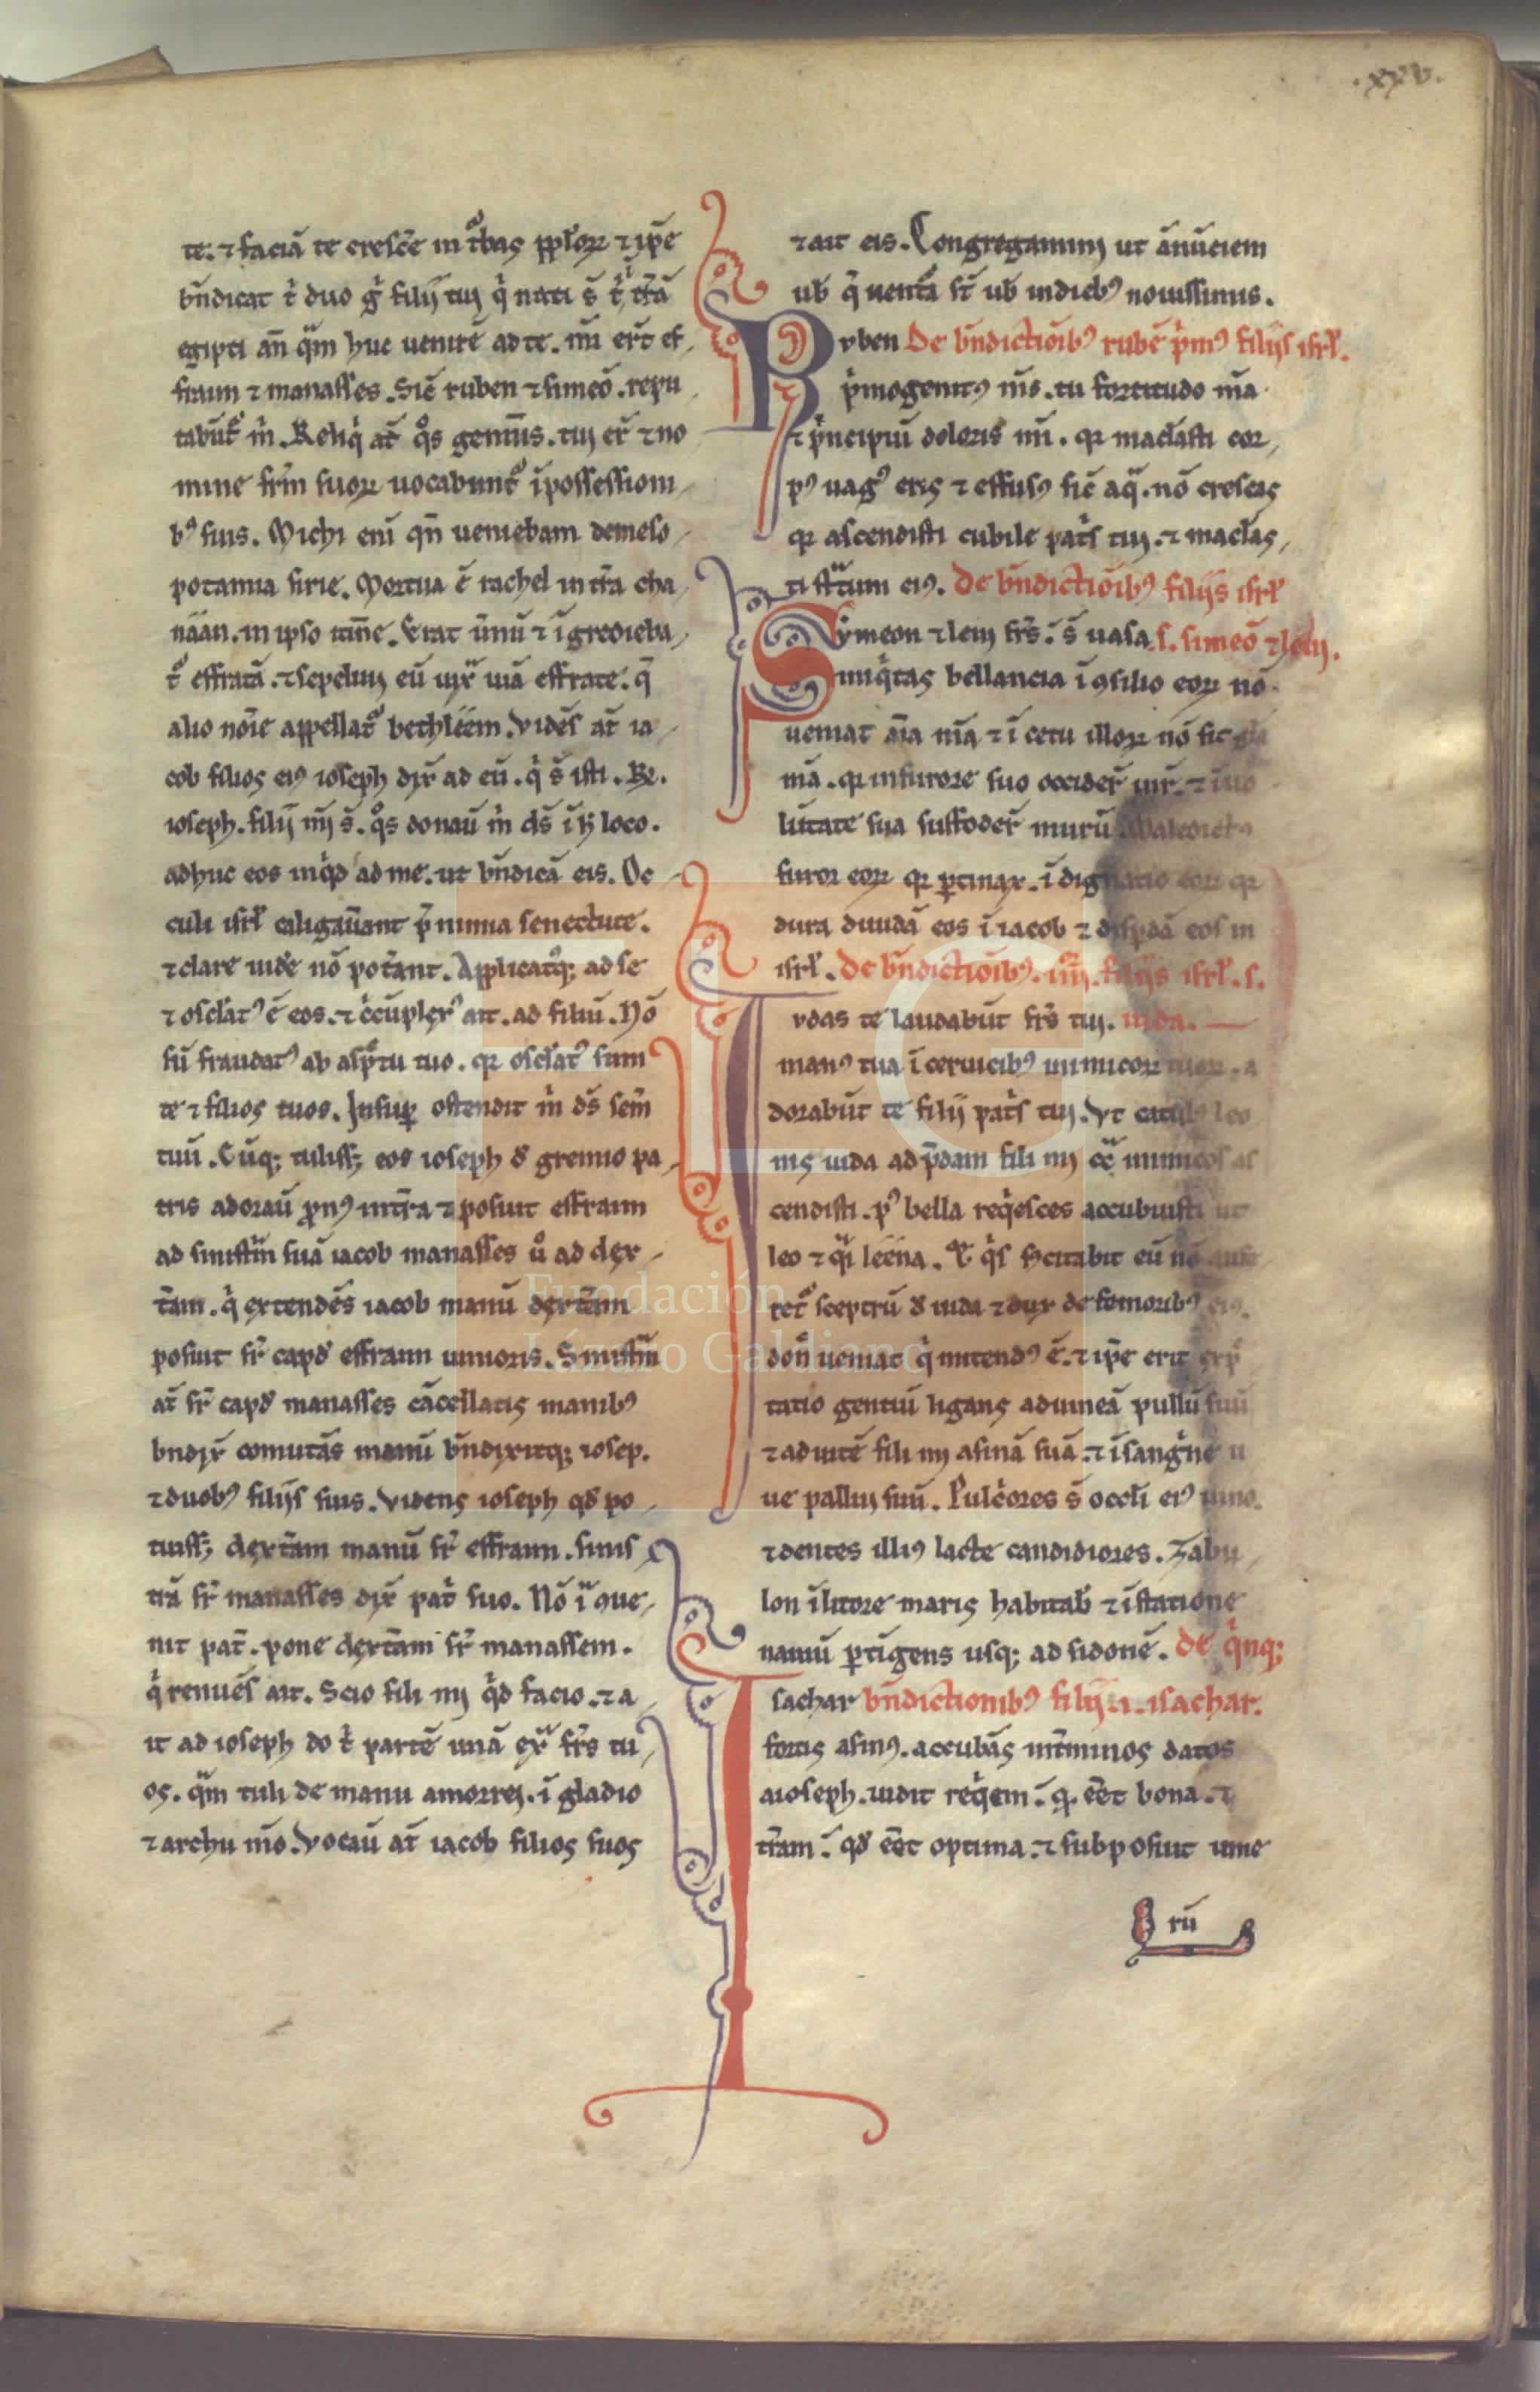 .xxv.
te. ⁊ faciā te cresc̄e in t᷑bas pp̄lorꝝ ⁊ ip̄e
bn̄dicat t̉ duo g̉ filij tuj q̉ nati s̄ t̉ ĩ tr̄ā
egipti an̄ q̄m huc uenirē ad te. mī er̄t ef
fraim ⁊ manasses. sic̄ ruben ⁊ simeō. repu
tabūt᷑ m̉. Reliq̉ at̄ q̊s genuīs. tuj er̄t ⁊ no
mine fr̄m suorꝝ uocabunt᷑ ī possessioni
bꝰ suis. Michi enī qn̄ ueniebam de meso
potamia sirie. Mortua ē rachel in tr̄a cha
náán. in ipso itin̄e. Erat u̅nū ⁊ īgredieba
t᷑ effratā. ⁊ sepeliuj eū iux̄ uiā effrate. q̄
alio noīe appellat᷑ bethléém. Vidēs at̄ ia
cob filios eiꝰ ioseph dix̄ ad eū. q̉ s̄ isti. R̄.
ioseph. filij mj s̄. q̊s donau̅ m̉ ds̄ ī h̉ loco.
adhuc eos inq̉d ad me. ut bn̄dicā eis. Oc
culi isrl̄ caligau̅ant p̄ nimia senectute.
⁊ clare uid̄e nō pot̄ant. Applicatq᷑; ad se
⁊ osc̄latꝰ ē eos. ⁊ c̉cūplexꝰ ait. ad filiū. Nō
sū fraudatꝰ ab asp̄tu tuo. qꝛ osc̄latꝰ sum
te ⁊ filios tuos. Insuꝑ ostendit m̉ ds̄ sem̄
tuū. Cūq; tuliss; eos ioseph đ gremio pa
tris adorau̅ p̄nꝰ in tr̄a ⁊ posuit effraim
ad sinist̄m suā iacob manasses ů ad dex
t̄am. q̉ extendēs iacob manū dext̄am
posuit sr̄ capđ effraim iunioris. Sinist̄m
at̄ sr̄ capđ manasses cācellatis manibꝰ
bn̄dix̄ comutās manū bn̄dixitq; iosep.
⁊ duobꝰ filijs suis. Videns ioseph qđ po
suiss; dext̄am manū sr̄ effraim. sinis
trā sr̄ manasses dix̄ pat̉ suo. Nō ĩ ꝯue
nit pat̄. pone dext̄am sr̄ manassem.
q̉ renuēs ait. Scio fili mj q̉d facio. ⁊ a
it ad ioseph do t̉ partē unā ex̄ᵃ fr̄s tu
os. q̄m tuli de manu amorrej. ī gladio
⁊ archu mō. Vocau̅ at̄ iacob filios suos
⁊ ait eis. Congreganinj ut ānūciem
ub̄ q̄ uent᷑a st̄ ub̄ in diebꝰ nouissimis.
Ruben De bn̄dictiōibꝰ rubē p̉mꝰ filijs isrl̄.
p̉mogenitꝰ ms̄. tu fortitudo mā
⁊ p̉ncipiū doloris mī. qꝛ maclasti cor
pꝰ uagꝰ eris ⁊ effusꝰ sic̄ aq̄. nō crescas
qꝛ ascendisti cubile pat̉s tuj. ⁊ maclas
ti st̄tum eiꝰ. De bn̄dictiōibꝰ filijs isrl̄
Symeon ⁊ leuj frs̄. s̄ uasa .s. simeō ⁊ leuj.
iniq̉tas bellancia ī ꝯsilio eorꝝ nō
ueniat aīa mā ⁊ ī cetu illorꝝ nō sit glā
mā. qꝛ in furore suo occider̄ uir̄. ⁊ ī uo
lūtate sua suffoder̄ murū. Maledictꝰ
furor eorꝝ qꝛ ꝑtinax. ī dignatio eorꝝ qꝛ
dura diuidā eos ī iacob ⁊ disp̄dā eos in
isrl̄. De bn̄dictiōibꝰ. iiij. filijs isrl̄. s.
Iudas te laudabūt frs̄ tuj. iuda.
manꝰ tua ī ceruicibꝰ inimicorꝝ tuorꝝ. a
dorabūt te filij pat̉s tuj. Vt catulꝰ leo
nis iuda ad p̄dam fili mj cc̄ᵃ inimicos as
cendisti. pꝰ bella req̉esces accubuisti ut
leo ⁊ q̄i léena. ⁊ q̉s suscitabit eū nō aufe
ret᷑ sceptrū đ iuda ⁊ dux de femoribꝰ eiꝰ.
don̄ ueniat q̉ mitendꝰ ē. ⁊ ip̄e erit exp̄
tatio gentiū ligans ad uineā pullū suū
⁊ ad uitē fili mj asinā suā. ⁊ ī sang̉ne u
ue palliū suū. Pulc̉ores s̄ occl̄i eiꝰ uino.
⁊ dentes illiꝰ lacte candidiores. Zabu
lon ī litore maris habitab̄ ⁊ ī statione
nauiū ꝑtīgens usq; ad sidonē. de q̉nq;
Isachar bn̄dictionibꝰ filij .i. isachar.
fortis asinꝰ. accubās int̄minos datos
a ioseph. uidit req̉em. q̄. eēt bona. ⁊
tr̄am. qđ eēt optima. ⁊ subposuit ume
rū
Fundación
Lázaro Galdiano